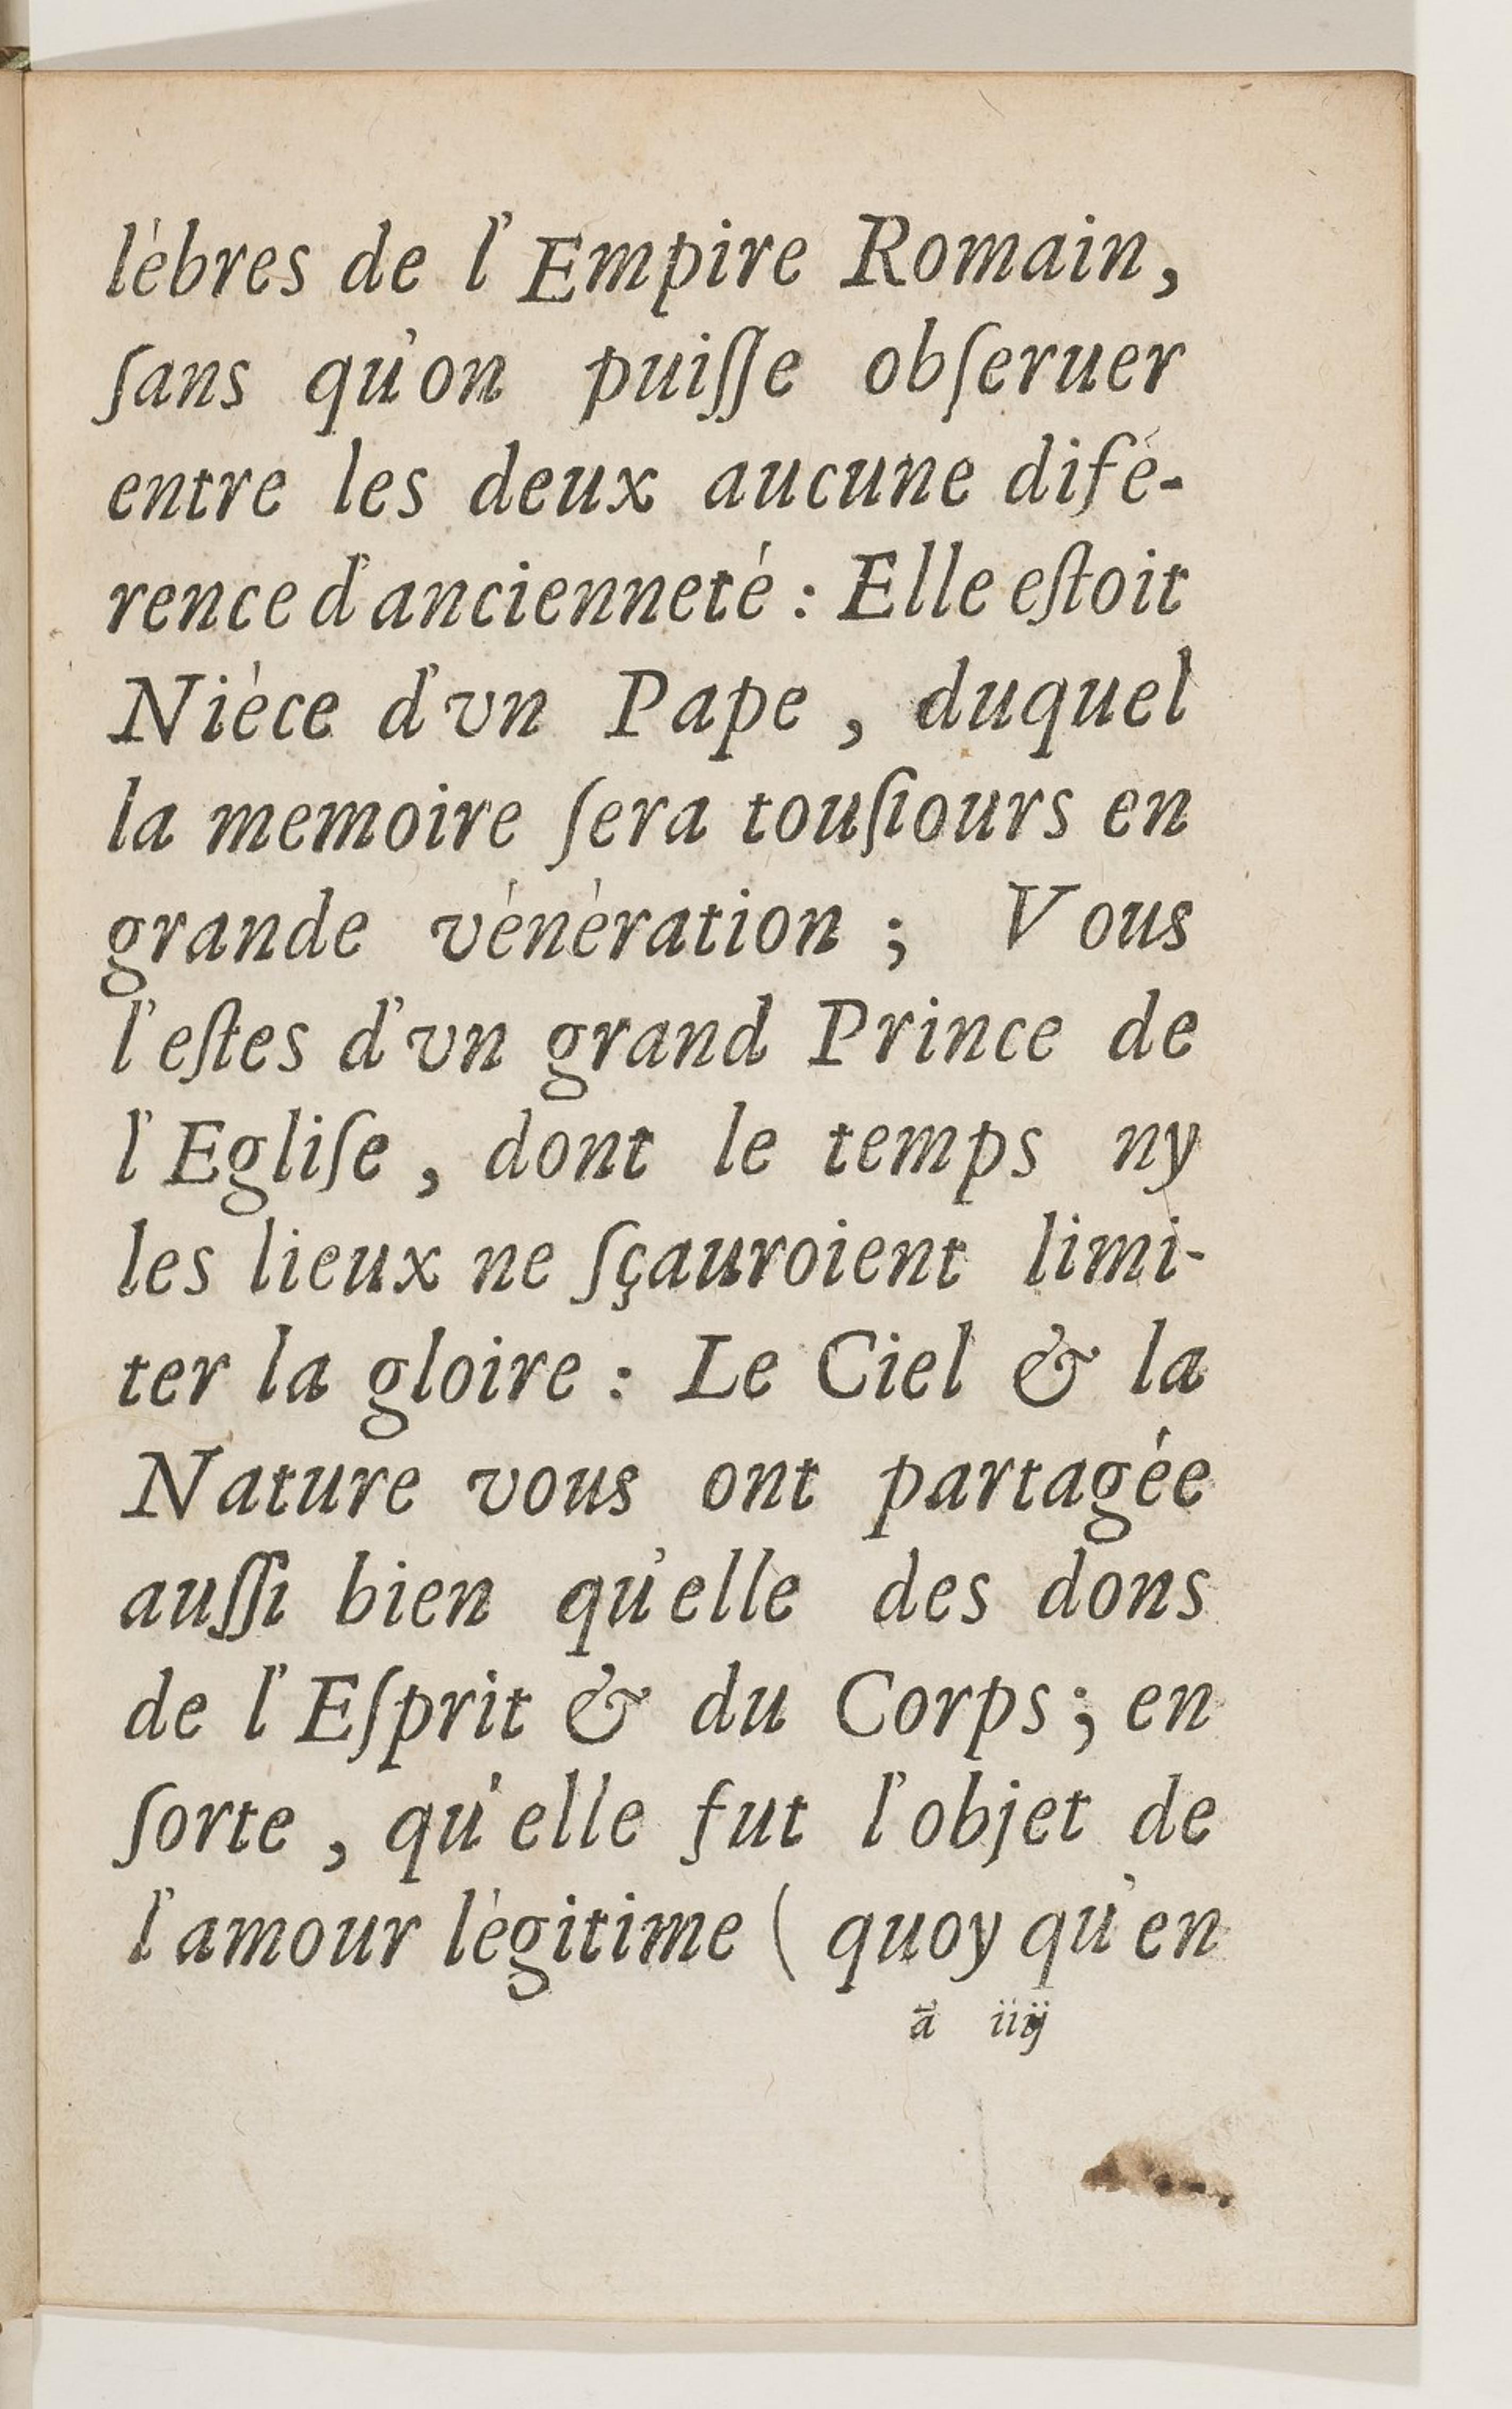 lébres de l'Empire Romain,
ſans qu'on puiſſe obſeruer
entre les deux aucune difé-
rence d'ancienneté : Elle eſtoit
Niéce d'vn Pape , duquel
la memoire ſera touſiours en
grande vénération ; Vous
l'eſtes d'vn grand Prince de
l'Egliſe , dont le temps ny
les lieux ne ſçauroient limi-
ter la gloire : Le Ciel & la
Nature vous ont partagée
auſſi bien qu'elle des dons
de l'Eſprit & du Corps ; en
ſorte , qu'elle fut l'objet de
l'amour légitime ( quoy qu'en
ã iiij